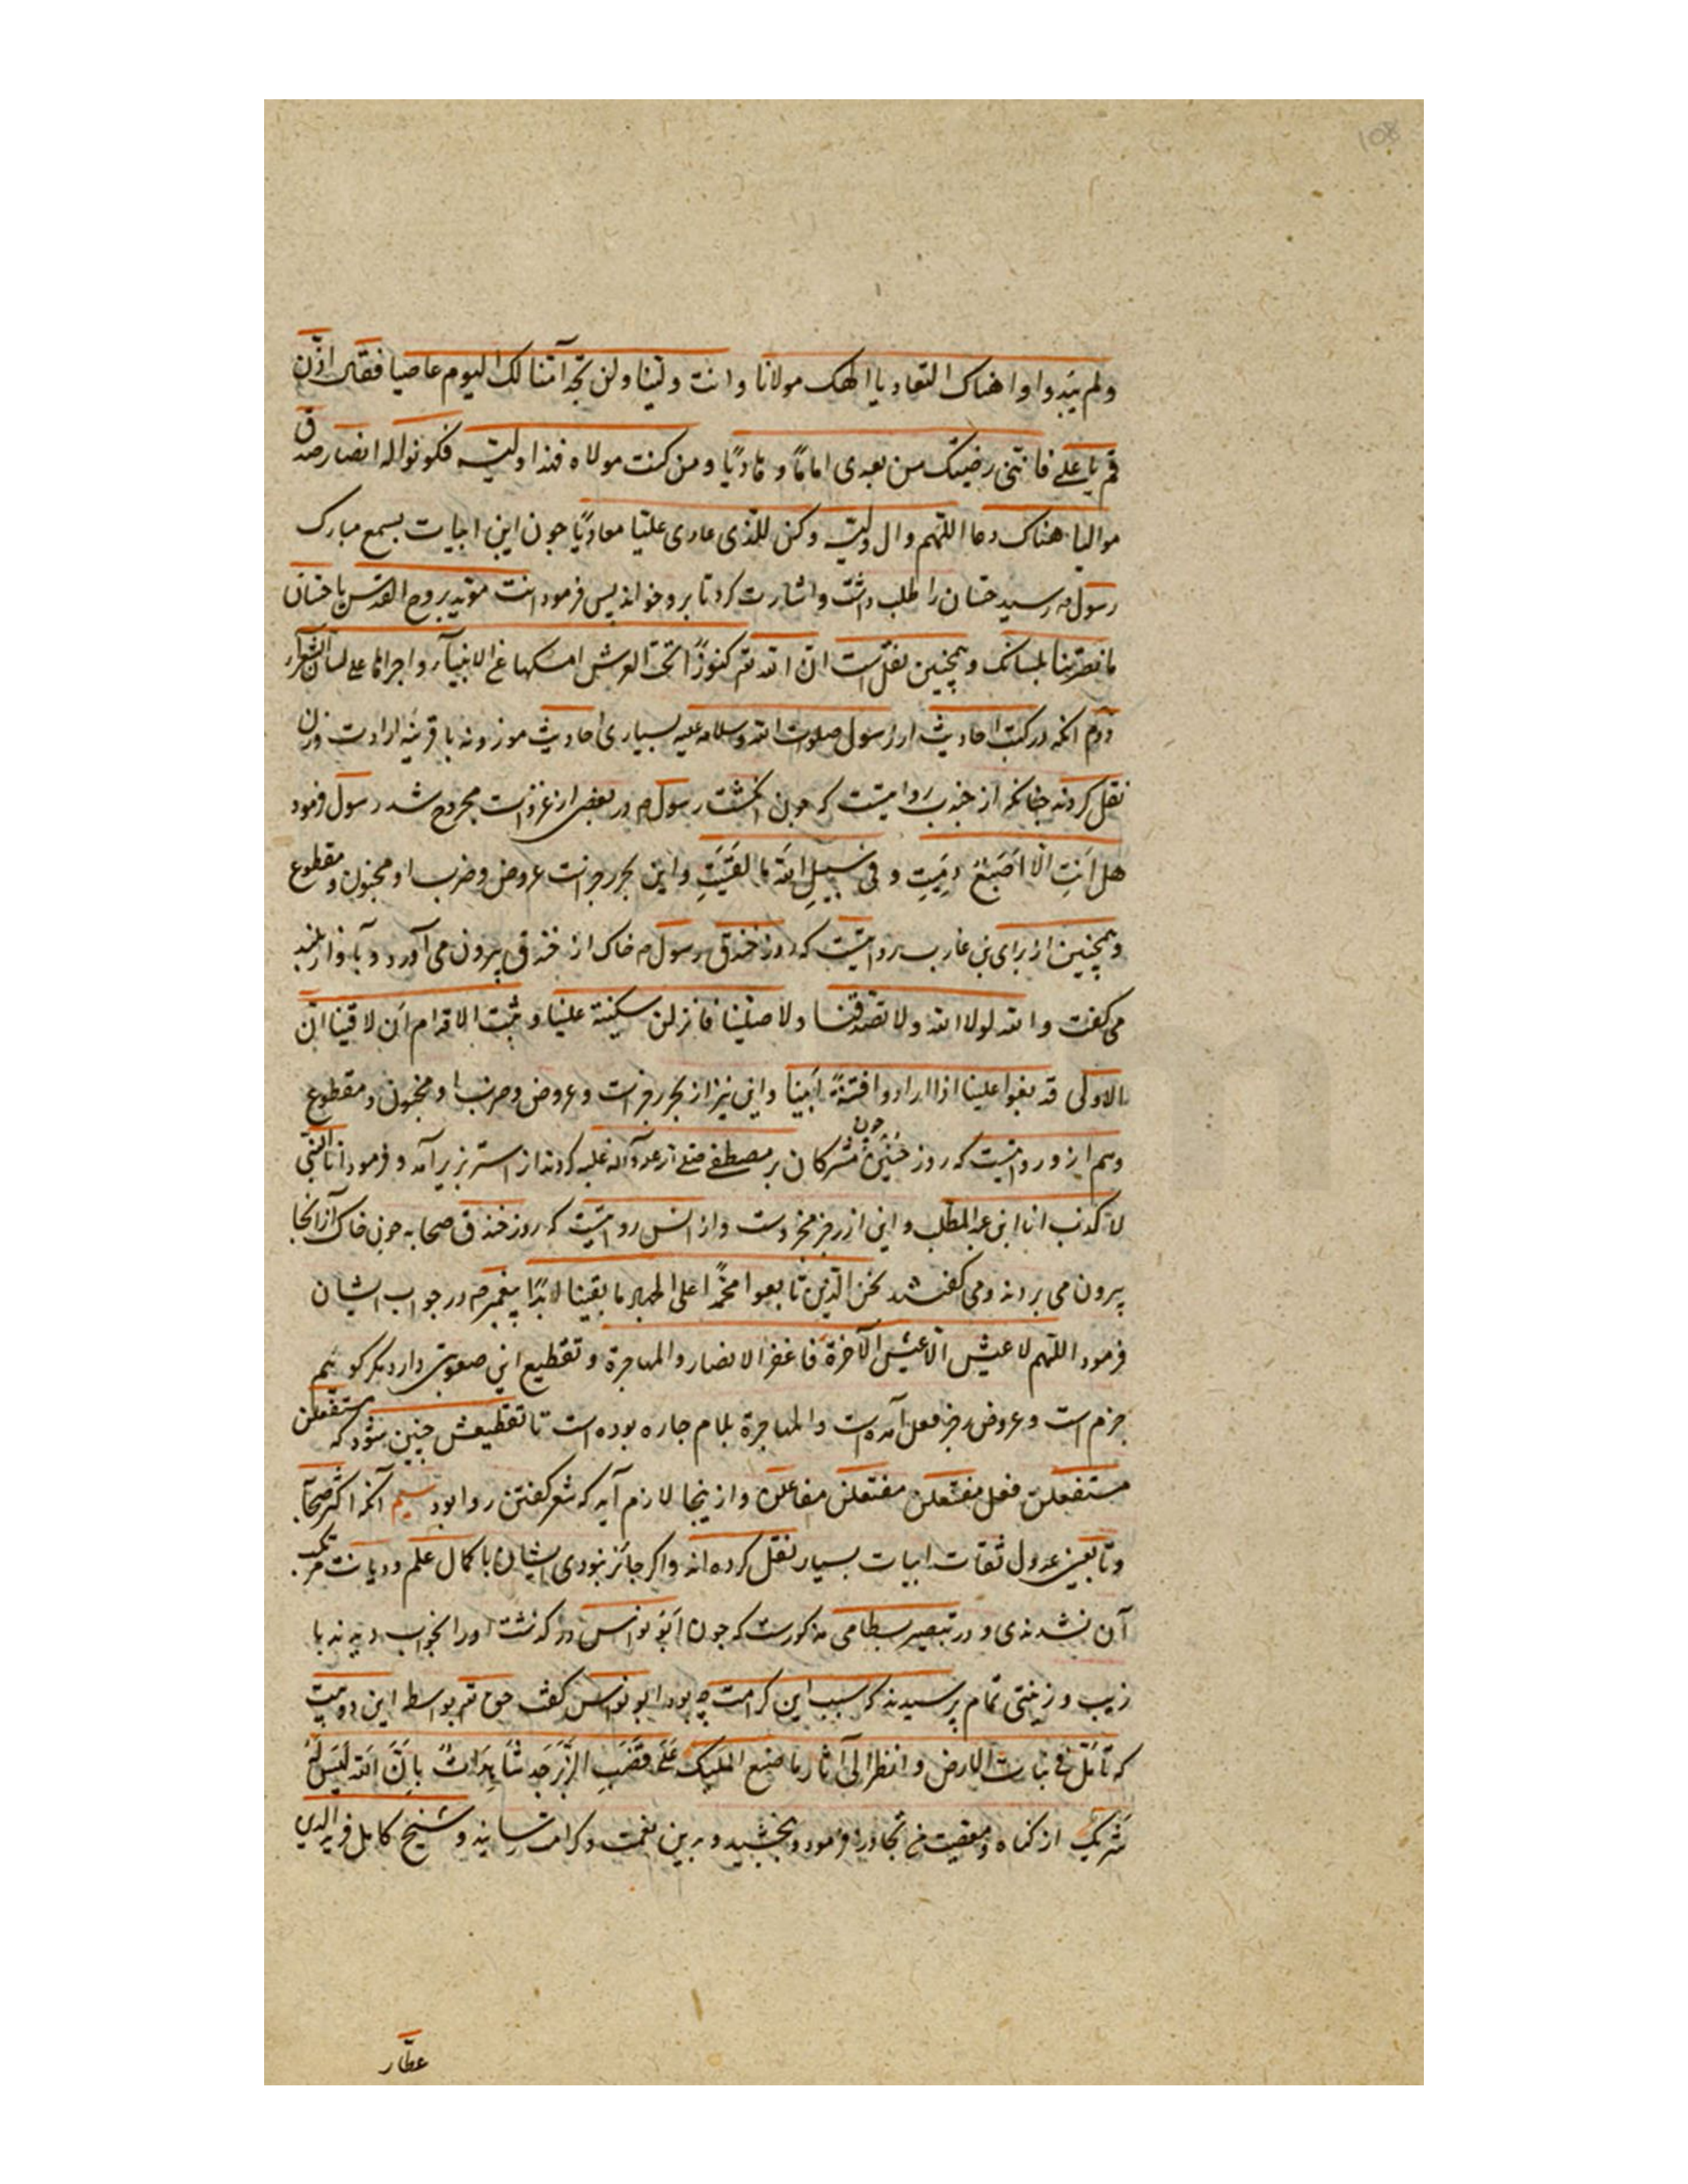 108
ولم یبدوا هناک التعادیا الهک مولانا وانت ولینا ولن تجد منا لک الیوم عاصیا فقال اذن
قم یا علی فاننی رضیتک من بعدی اماما و هادیًا و من کنت مولاه فهذا ولیه فکونوا له انصار صدق
موالیا هناک دعا اللهم وال ولیه وکن للذی عادی علیّا معادیًا چون این ابیات بسمع مبارک
رسول م رسید حسّان را طلب داشت و اشارت کرد تا برو خواند پس فرمود انت مؤید بروح القدس یا حسّان
ما نصرتنا بلسانک و همچنین نقل است انّ الله تع کنوزًا تحت العرش امسکها عن الانبیآء و اجراها علی لسان الشعرآء
دوم انکه در کتب احادیث از رسول صلوات الله و سلامه علیه بسیاری احادیث موزونه با قرینهٔ ارادت وزن
نقل کردند چنانکه از جندب روایتست که چون انکشت رسول م در بعضی از غزوات مجروح شد رسول فرمود
هل اَنتِ الّا اصبعٌ دمیتِ و فی سبیلِ الله ما لقیتِ و این بحر رجز است عروض و ضرب او مخبون و مقطوع
و همچنین از برای بن عازب روایتست که روز خندق رسول م خاک از خندق بیرون می آورد و بآواز بلند
می کفت والله لولا الله ولا تصدقنا ولا صلّینا فانزلن سکینة علینا و ثبت الاقدام ان لاقینا انّ
الاولی قد بغوا علینا اذا ارادوا فتنةً اَبینا و این نیز از بحر رجز است و عروض و ضرب او مخبون و مقطوع
و هم ازو روایتست که روز حنین چون مشرکان بر مصطفی صلی الله علیه وآله غلبه کردند از استر بزیر آمد و فرمود انا النبی
لا کذب انا ابن عبد المطلب و این از رجز مجزوست و از انس روایتست که روز خندق صحابه چون خاک از انجا
بیرون می بردند و می کفتند نحن الذین تابعوا محمّدًا علی الجهاد ما بقینا ابدًا پیغمبر م در جواب ایشان
فرمود اللهم لا عیش الّا عیش الآخرة فاغفر الانصار والمهاجرة و تقطیع این صعوبتی دارد مکر کوئیم
خرم است و عروض رجز فعل آمده است و المهاجرة بلام جاره بوده است تا تقطیعش چنین شود که مستفعلن
مستفعلن فعل مفتعلن مفتعلن مفاعلن و از ینجا لازم آید که شعر کفتن روا بود سیم آنکه اکثر صحابه
و تابعین عدول ثقات ابیات بسیار نقل کرده اند و اکر جائز نبودی ایشان با کمال علم و دیانت مرتکب
آن نشدندی و در تبصیر بسطامی مذکورست که چون ابو نواس درکذشت اورا بخواب دیدند با
زیب و زینتی تمام پرسیدند که سبب این کرامت چه بود ابو نواس کفت حق تع بواسطه این دو بیت
که تامّل فی نبات الارض وانظر الی آثار ما صنع الملیک علی قضب الزّبرجد شاهداتٌ بانّ الله لیس له
شریک از کناه و معصیت من تجاوز فرمود و بخشید و بدین نعمت و کرامت رسانید و شیخ کامل فرید الدین
عطّار